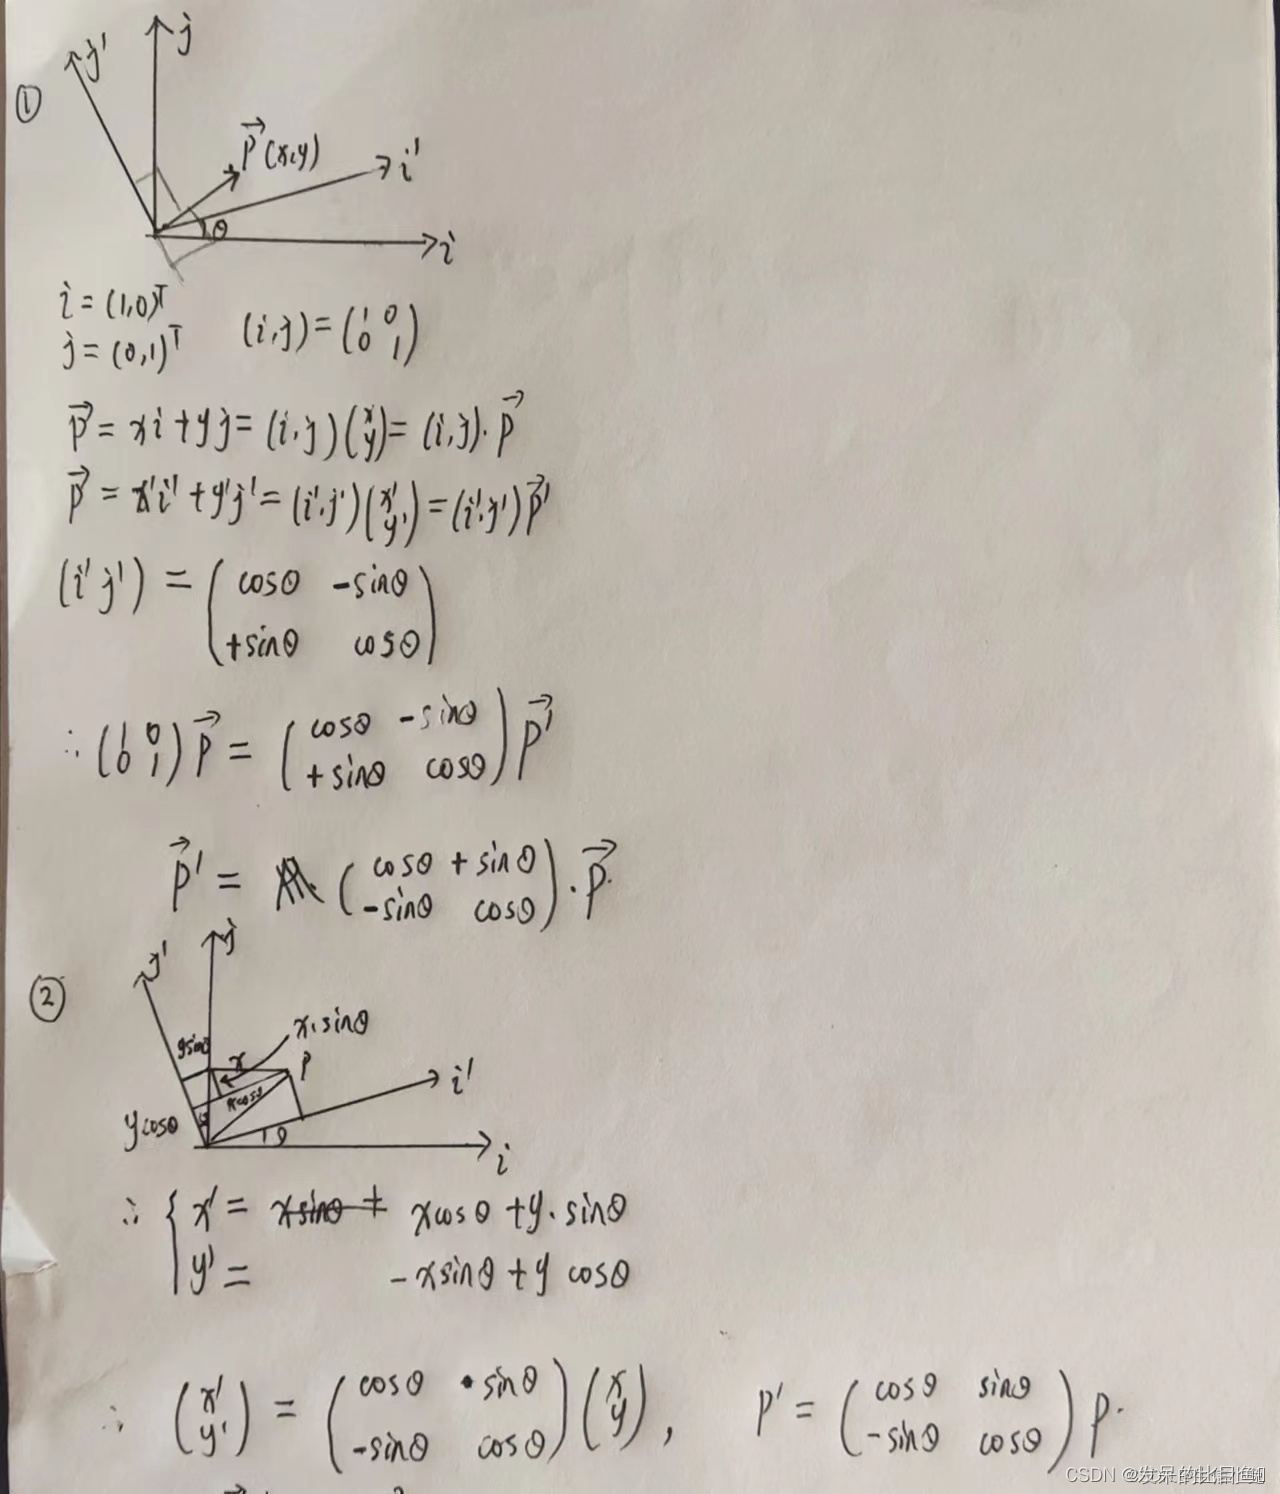 ①
j'
j
p⃗(x,y)
i'
θ
i
i = (1,0)ᵀ
j = (0,1)ᵀ
(i,j) = (1 0
0 1)
p⃗ = xi + yj = (i,j)(x
y) = (i,j)·p⃗
p⃗ = x'i' + y'j' = (i',j')(x'
y') = (i',j')p⃗'
(i' j') = (cosθ -sinθ
+sinθ cosθ)
∴ (1 0
0 1) p⃗ = (cosθ -sinθ
+sinθ cosθ) p⃗'
p⃗' = (cosθ +sinθ
-sinθ cosθ)·p⃗.
②
j'
j
x·sinθ
ysinθ
x
p
i'
xcosθ
ycosθ
θ
i
∴ { x' = xsinθ + xcosθ + y·sinθ
y' = -xsinθ + y cosθ
∴ (x'
y') = (cosθ ·sinθ
-sinθ cosθ)(x
y),
p' = (cosθ sinθ
-sinθ cosθ) p.
CSDN @发呆的比目鱼